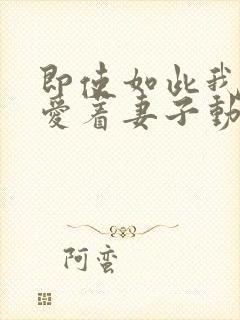 即使如此我
爱着妻子動
阿蛮